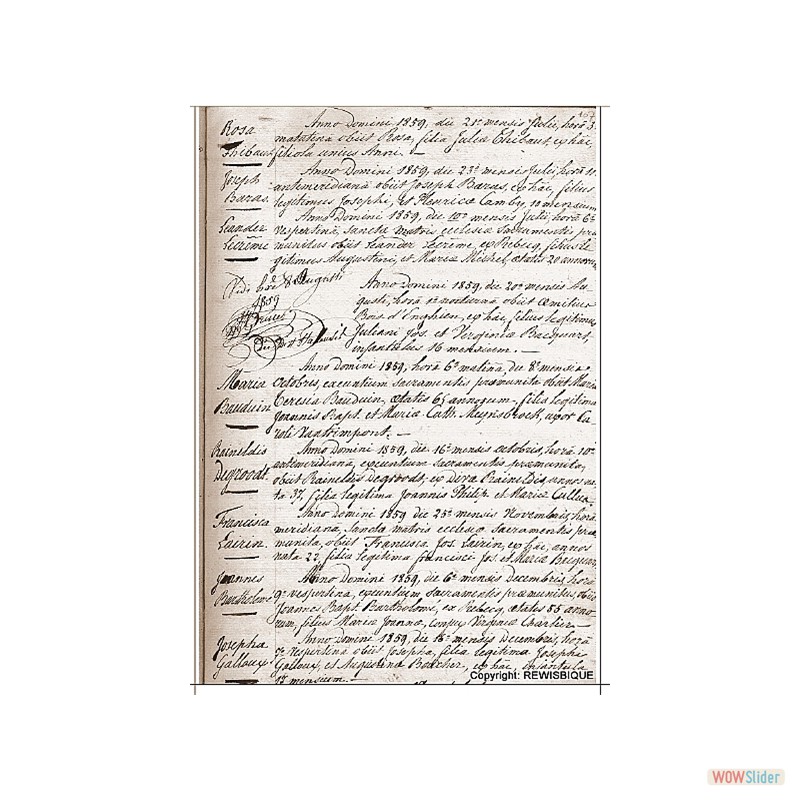 Rosa
Thibaut
Anno Domini 1859, die 21ª mensis Julii, horâ 3
matutinâ obiit Rosa, filia Julia Thibaut, ex hâc,
filiola unius Anni. —
Joseph
Baras
Anno Domini 1859, die 23ª mensis Julii, horâ 11
antemeridianâ obiit Joseph Baras, ex hâc, filius
legitimus Josephi, et Henrica Camby, mensium
Leander
Lecrême
Anno Domini 1859, die mensis Julii, horâ 6ª
vespertinâ, sanctæ matris ecclesiæ Sacramentis præ
munitus obiit Leander Lecrême, ex Rebecq, filius le
gitimus Augustini, et Maria Michel, ætatis 20 annorum
Vidi hac Augusti
1859
Anno Domini 1859, die 20ª mensis Au
gusti, horâ obiit
Bois d'Enghien, ex hâc, filius legitimus
Juliani Jos. et Virginia Bacquart,
infantulus 16 mensium. —
Maria
Bauduin
Anno Domini 1859, horâ 6ª matinâ, die 8ª mensis
Octobris, exeuntium sacramentis præmunita obiit Maria
Teresia Bauduin, ætatis 65 annorum, filia legitima
Joannis Bapt. et Maria Cath. Meynsbrock, uxor Ca
roli Vantrimpont. —
Raineldis
Degroodt
Anno Domini 1859, die 16ª mensis octobris, horâ 10ª
antemeridianâ, exeuntium sacramentis præmunita,
obiit Raineldis Degroodt, ex Raineldis, annos na
ta 37, filia legitima Joannis Philip. et Maria
Francisca
Lairin
Anno Domini 1859 die 25ª mensis Novembris, horâ
meridianâ, sanctæ matris ecclesiæ sacramentis præ
munita, obiit Francisca Jos. Lairin, ex hâc, annos
nata 22, filia legitima francisci Jos. et Maria Bacquart
Joannes
Bartholomé
Anno Domini 1859, die 6ª mensis Decembris, horâ
9ª vespertinâ, exeuntium sacramentis præmunitus, obiit
Joannes Bapt. Bartholomé, ex Rebecq, ætatis 55 anno
rum, filius Maria Joanna, conjux Virginia Chartier —
Josepha
Galloux
Anno Domini 1859, die 15ª mensis Decembris, horâ
vespertinâ obiit Josepha, filia legitima Josephi
Galloux, et Augustina Boucher, ex hâc, infantula
mensium. —
Copyright: REWISBIQUE
WOWSlider